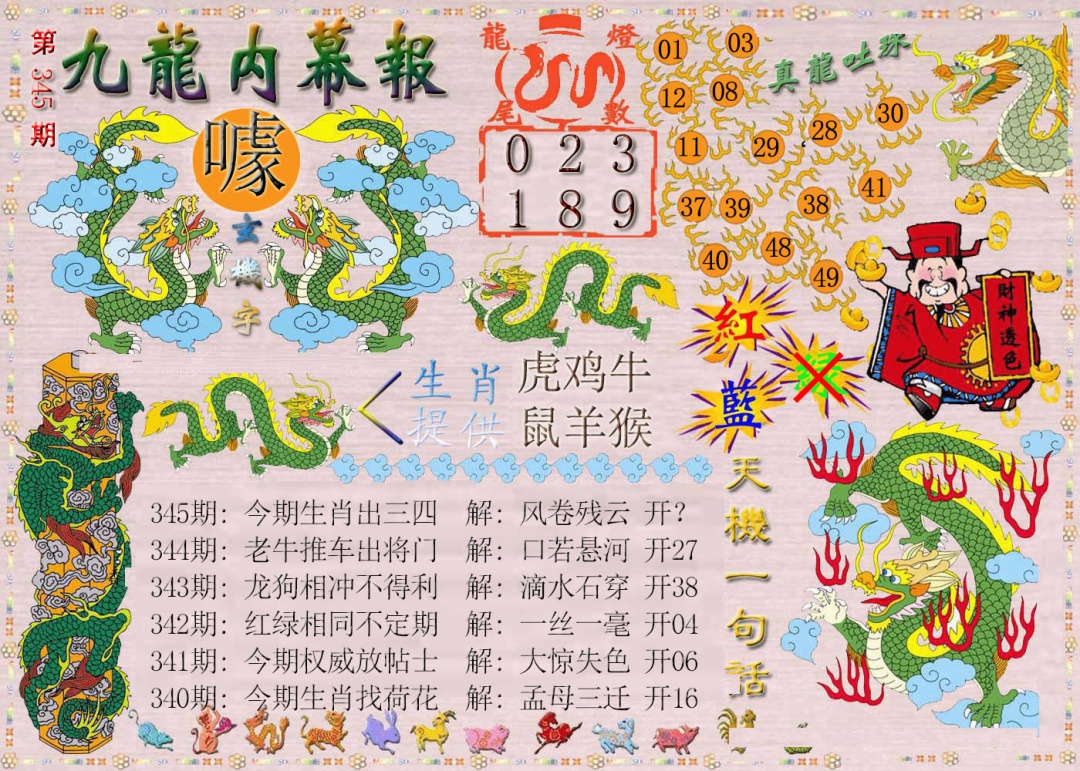 第345期
九龍内幕報
噱
玄機字
龍燈尾數
0 2 3
1 8 9
真龍吐珠
01 03
12 08
11 29 28 30
37 39 38 41
40 48 49
紅
綠
藍
財神透色
生肖提供
虎鸡牛
鼠羊猴
天機一句话
345期：今期生肖出三四 解：风卷残云 开？
344期：老牛推车出将门 解：口若悬河 开27
343期：龙狗相冲不得利 解：滴水石穿 开38
342期：红绿相同不定期 解：一丝一毫 开04
341期：今期权威放帖士 解：大惊失色 开06
340期：今期生肖找荷花 解：孟母三迁 开16